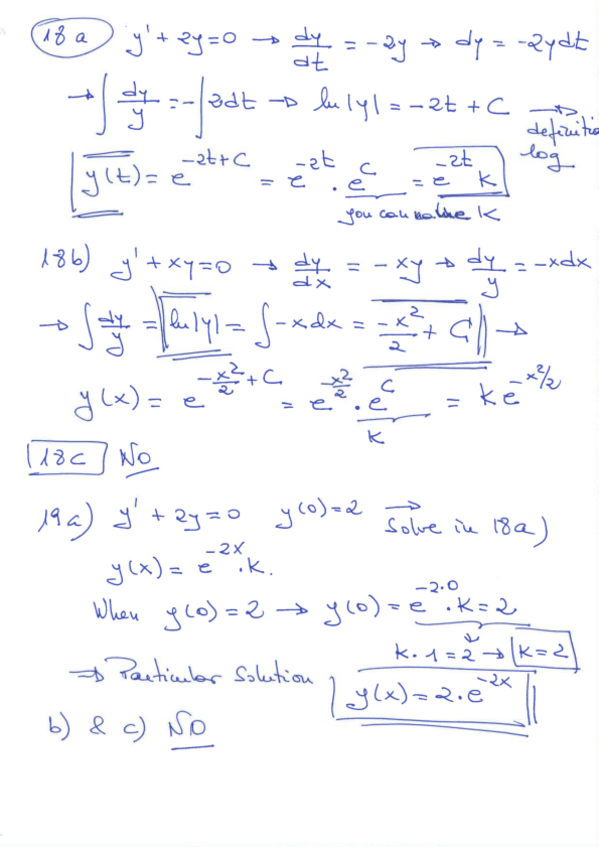 18a y' + 2y = 0 → dy/dt = -2y → dy = -2y dt
→ ∫ dy/y = -∫ 2dt → ln|y| = -2t + C → definitio log
y(t) = e^{-2t+C} = e^{-2t} · e^C = e^{-2t} K
you can name K
18b) y' + xy = 0 → dy/dx = -xy → dy/y = -x dx
→ ∫ dy/y = ln|y| = ∫ -x dx = -x²/2 + C →
y(x) = e^{-x²/2 + C} = e^{-x²/2} · e^C = K e^{-x²/2}
K
18c NO
19a) y' + 2y = 0 y(0) = 2 → Solve in 18a)
y(x) = e^{-2x} · K.
When y(0) = 2 → y(0) = e^{-2·0} · K = 2
K · 1 = 2 → K = 2
→ Particular Solution y(x) = 2 · e^{-2x}
b) & c) NO